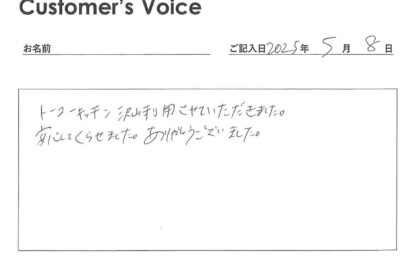 Customer's Voice
お名前
ご記入日2025年5月8日
トーコーキッチン沢山利用させていただきました。
安心してくらせました。ありがとうございました。